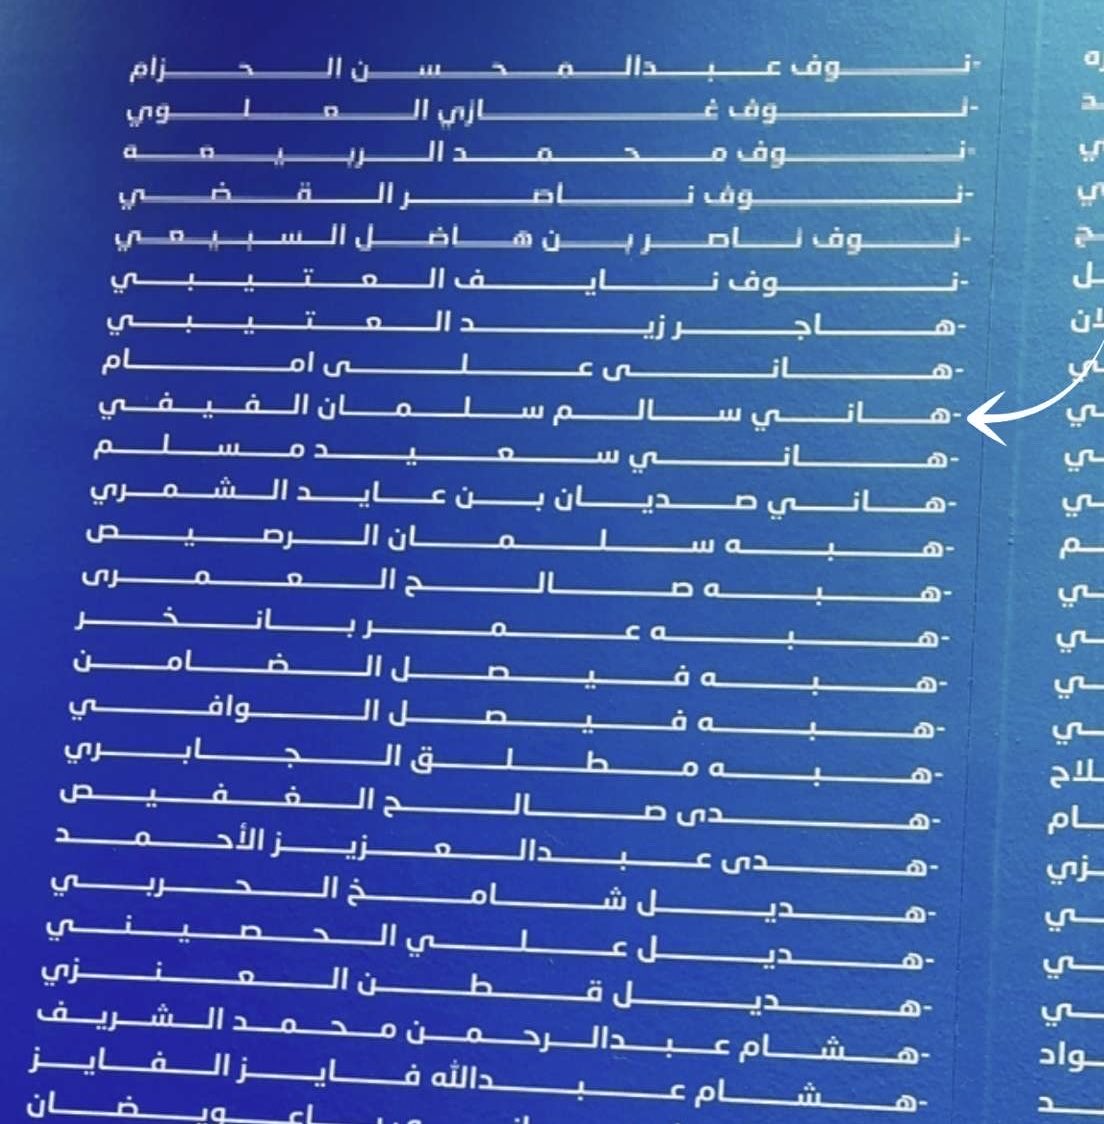 -نوف عبدالمحسن الحزام
-نوف غازي العلوي
-نوف محمد الربيعة
-نوف ناصر القضي
-نوف ناصر بن هاضل السبيعي
-نوف نايف العتيبي
-هاجر زيد العتيبي
-هانى على امام
-هاني سالم سلمان الفيفي
-هاني سعيد مسلم
-هاني صديان بن عايد الشمري
-هبه سلمان الرصيص
-هبه صالح العمرى
-هبه عمر بانخر
-هبه فيصل الضامن
-هبه فيصل الوافي
-هبه مطلق الجابري
-هدى صالح الغفيص
-هدى عبدالعزيز الأحمد
-هديل شامخ الحربي
-هديل علي الحصيني
-هديل قطن العنزي
-هشام عبدالرحمن محمد الشريف
-هشام عبدالله فايز الفايز